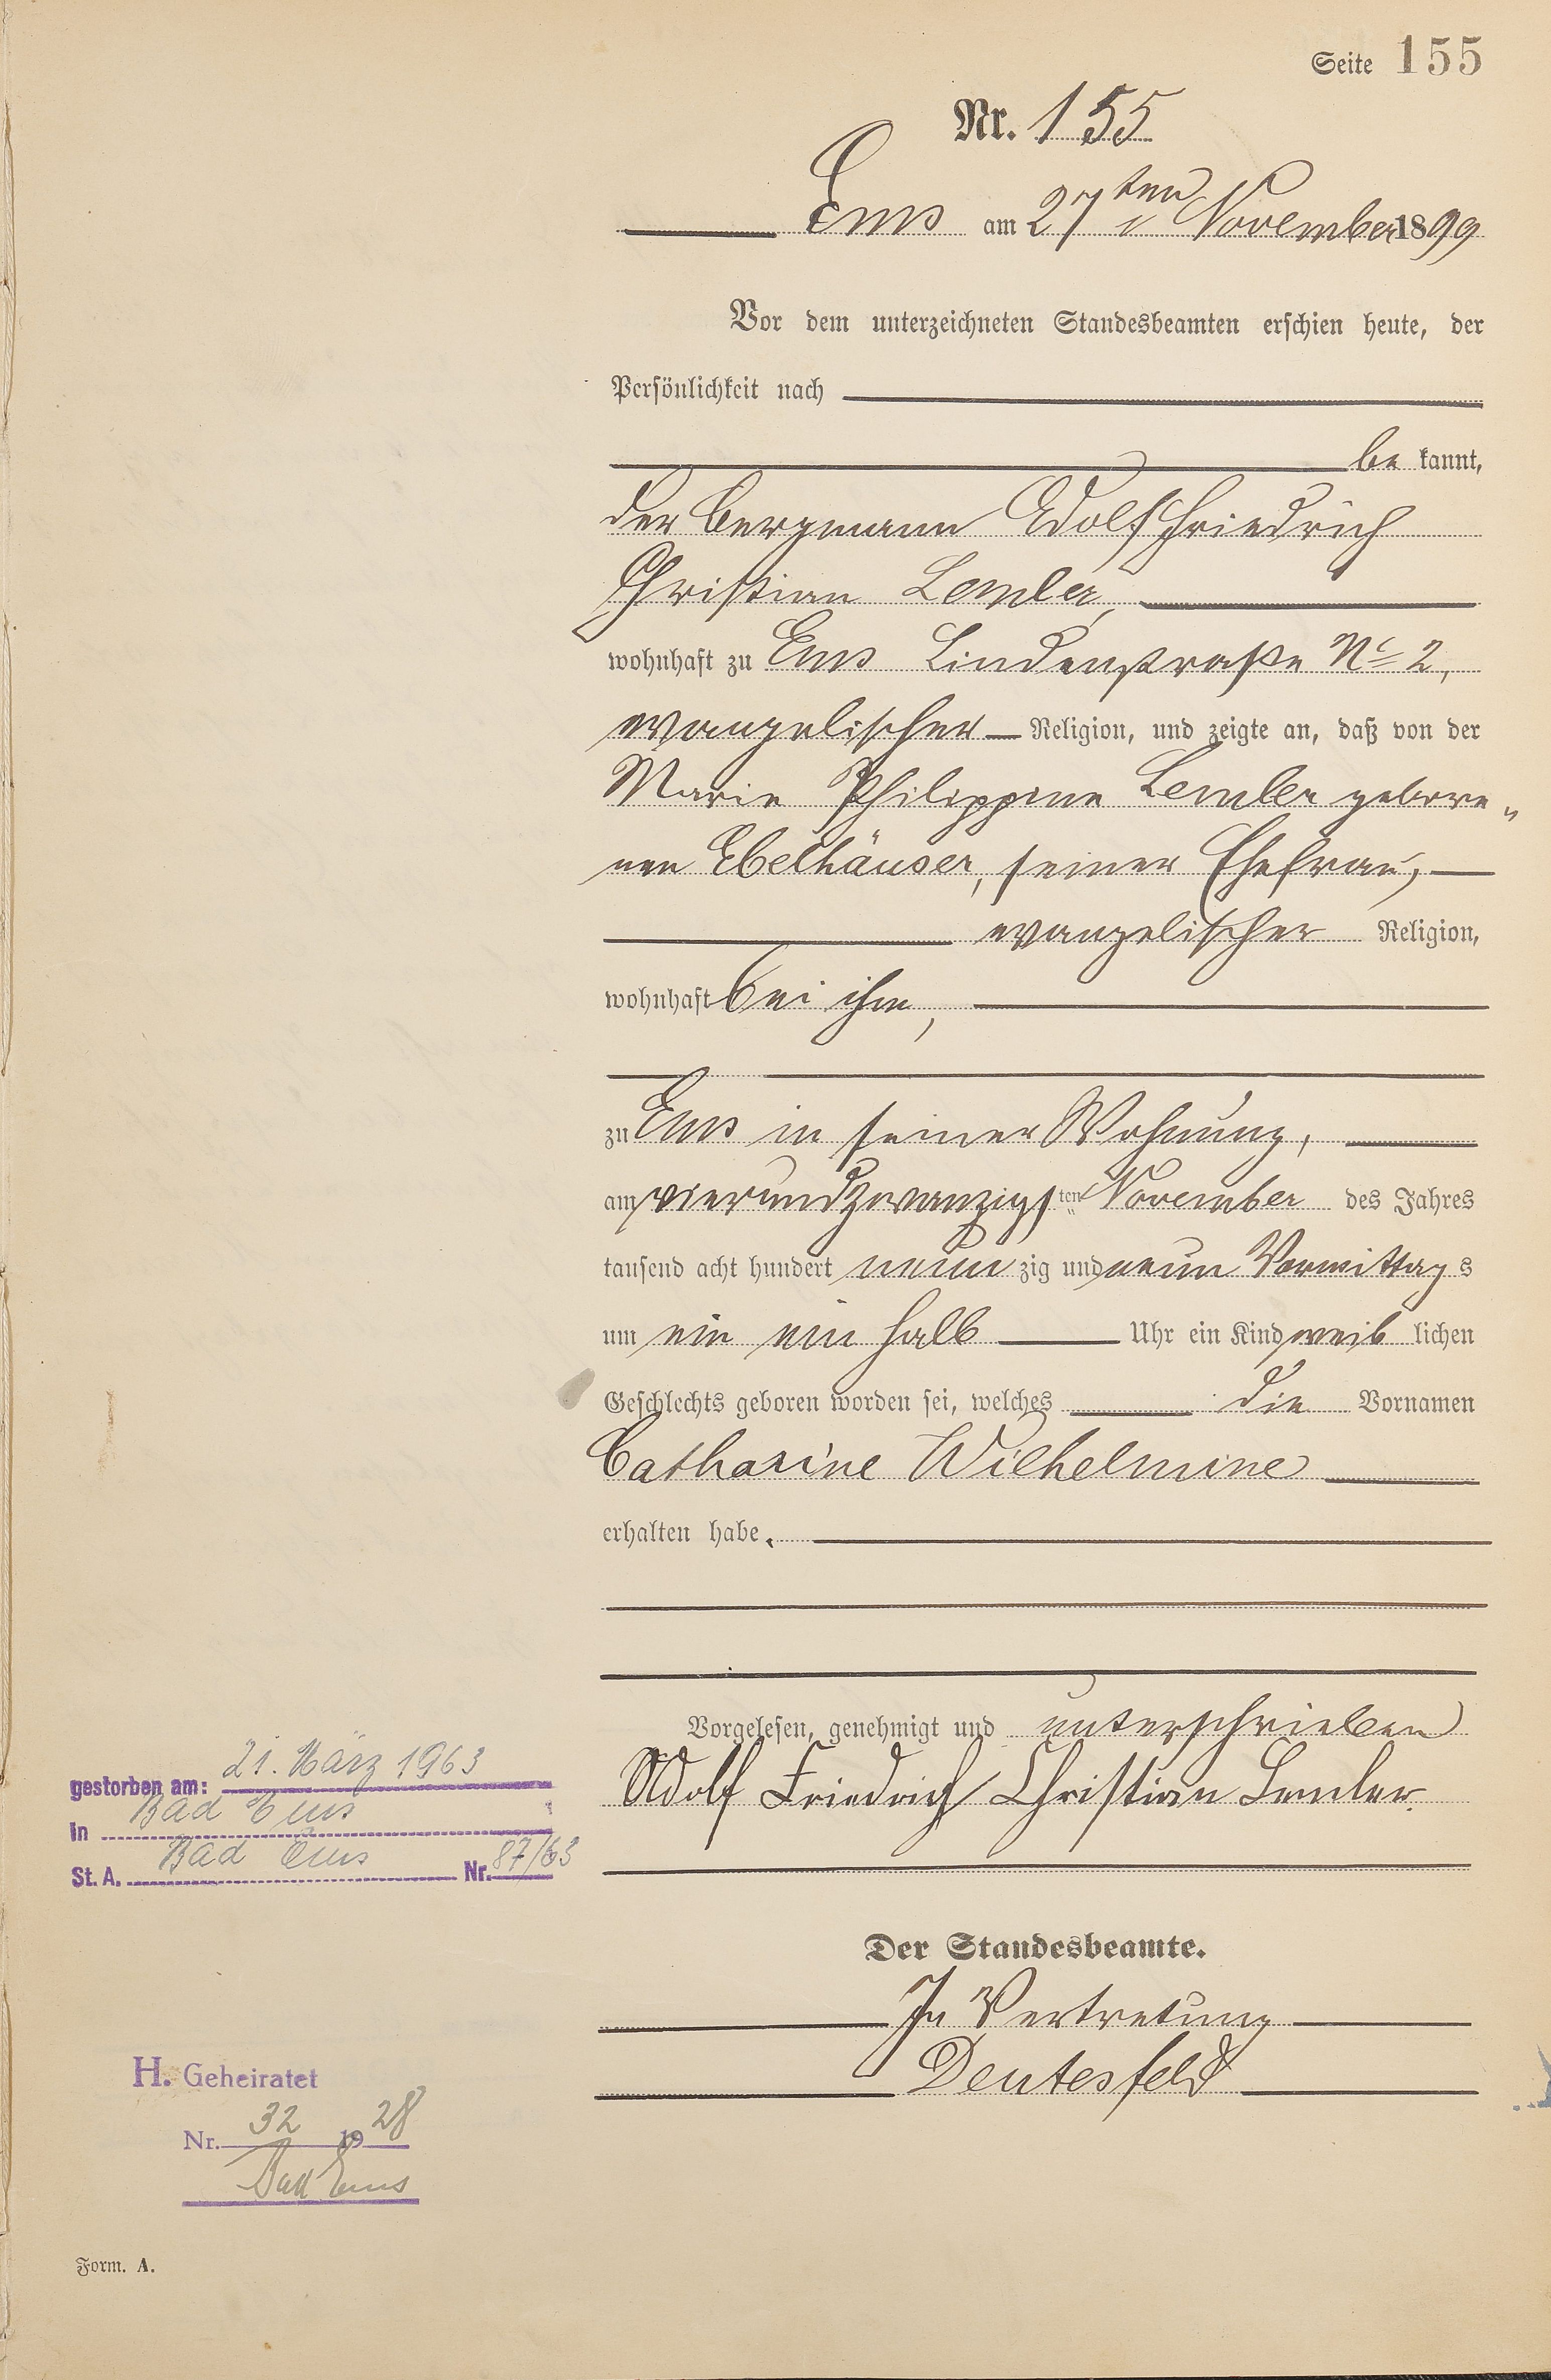 Seite 155
Nr. 155
Ems am 27ten November 1899
Vor dem unterzeichneten Standesbeamten erschien heute, der
Persönlichkeit nach
be kannt,
der Bergmann Adolf Friedrich
Christian Lemler,
wohnhaft zu Ems Lindenstraße No 2,
evangelischer Religion, und zeigte an, daß von der
Marie Philippine Lemler gebore„
nen Ebelhäuser, seiner Ehefrau,
evangelischer Religion,
wohnhaft bei ihm,
zu Ems in seiner Wohnung,
am vierundzwanzigsten November des Jahres
tausend acht hundert neun zig und neun Vormittag s
um ein ein halb Uhr ein Kind weib lichen
Geschlechts geboren worden sei, welches die Vornamen
Catharine Wilhelmine
erhalten habe.
Vorgelesen, genehmigt und unterschrieben
Adolf Friedrich Christian Lemler.
gestorben am: 21. März 1963
in Bad Ems
St. A. Bad Ems Nr. 87/63
Der Standesbeamte.
In Vertretung
Deutesfeld
H. Geheiratet
Nr. 32 1928
Bad Ems
Form. A.